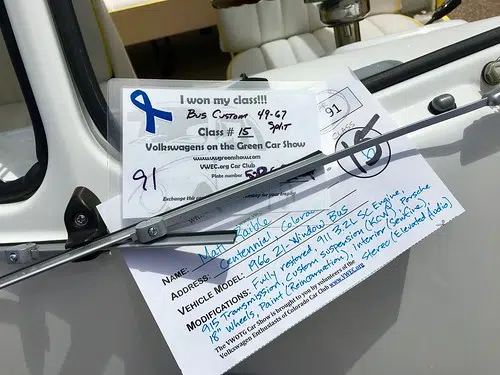 I won my class!!!
Bus Custom 49-67
Split
Class # 15
Volkswagens on the Green Car Show
www.vwgreenshow.com
VWEC.org Car Club
Plate number
91
Exchange this
91
CLASS
15
NAME: Matt Raible
ADDRESS: Centennial, Colorado
VEHICLE MODEL: 1966 21-Window Bus
MODIFICATIONS: Fully restored, 911 3.2L SC Engine,
915 Transmission, Custom suspension (KCW), Porsche
18" Wheels, Paint (Reincarnation), interior (SewFine),
Stereo (Elevated Audio)
The VWOTG Car Show is brought to you by volunteers of the
Volkswagen Enthusiasts of Colorado Car Club www.VWEC.org